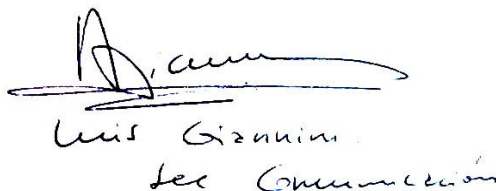 Luis Giannini
Sec Comunicación